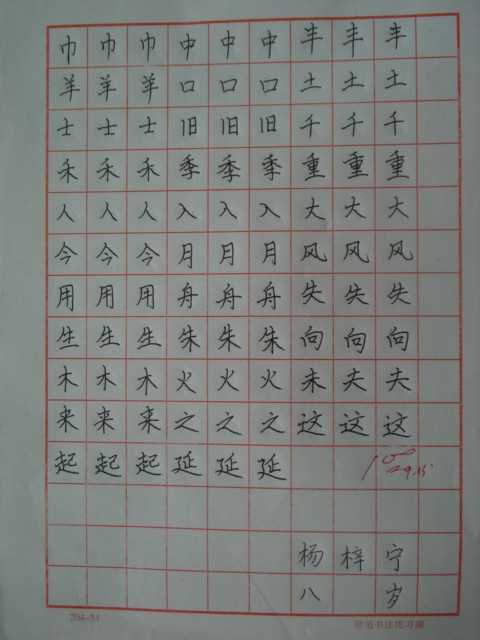 巾巾巾中中中丰丰丰
羊羊羊口口口土土土
士士士旧旧旧千千千
禾禾禾季季季重重重
人人人入入入大大大
今今今月月月风风风
用用用舟舟舟失失失
生生生朱朱朱向向向
木木木火火火未夫夫
来来来之之之这这这
起起起延延延
100
杨梓宁
八岁
204-54 硬笔书法练习簿